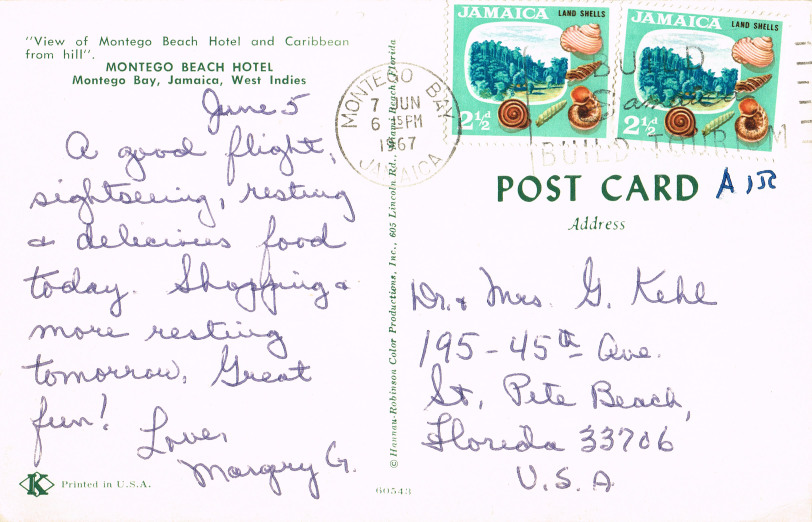 "View of Montego Beach Hotel and Caribbean
from hill".
MONTEGO BEACH HOTEL
Montego Bay, Jamaica, West Indies
June 5
A good flight,
sightseeing, resting
& delicious food
today. Shopping &
more resting
tomorrow. Great
fun!
Love,
Margery G.
K
Printed in U.S.A.
© Hannau-Robinson Color Productions, Inc., 605 Lincoln Rd., Miami Beach, Florida
60543
MONTEGO BAY
7 JUN
6 15PM
1967
JAMAICA
JAMAICA LAND SHELLS
2½d
JAMAICA LAND SHELLS
2½d
BUILD
Jamaica
BUILD TOURISM
POST CARD AIR
Address
Dr. & Mrs. G. Kehl
195-45th Ave.
St. Pete Beach,
Florida 33706
U.S.A